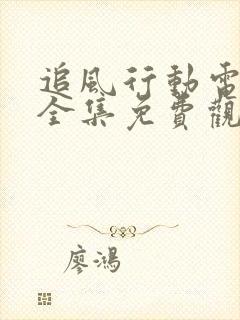 追風行動電
全集免費觀
廖鴻